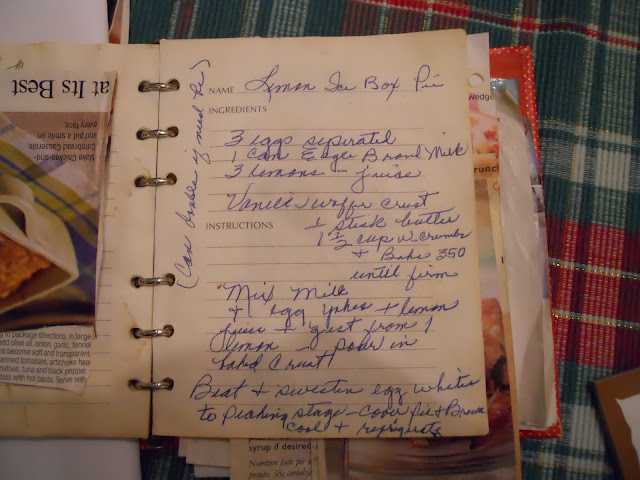 at Its Best
Make Chicken-and-
Cornbread Casserole
and put a smile on
every face.
to package directions. In large
add olive oil, onion, garlic, fennel
become soft and transparent,
canned tomatoes, artichoke hear
tomatoes, tuna and black pepper.
toss with hot pasta. Serve with
(Can double if need be)
NAME Lemon Ice Box Pie
INGREDIENTS
3 eggs seperated
1 can Eagle Brand Milk
3 lemons - juise
Vanilla Waffer Crust
INSTRUCTIONS
1 stick butter
1 1/2 cup W. Crumbs
+ Bake 350
until firm
Mix Milk
+ egg yokes + lemon
juise + zest from 1
lemon - pour in
baked Crust
Beat + sweeten egg whites
to peaking stage - Cover Pie + Brown
Cool + refrigerate
Wedge
runch
syrup if desired
Nutrition facts per